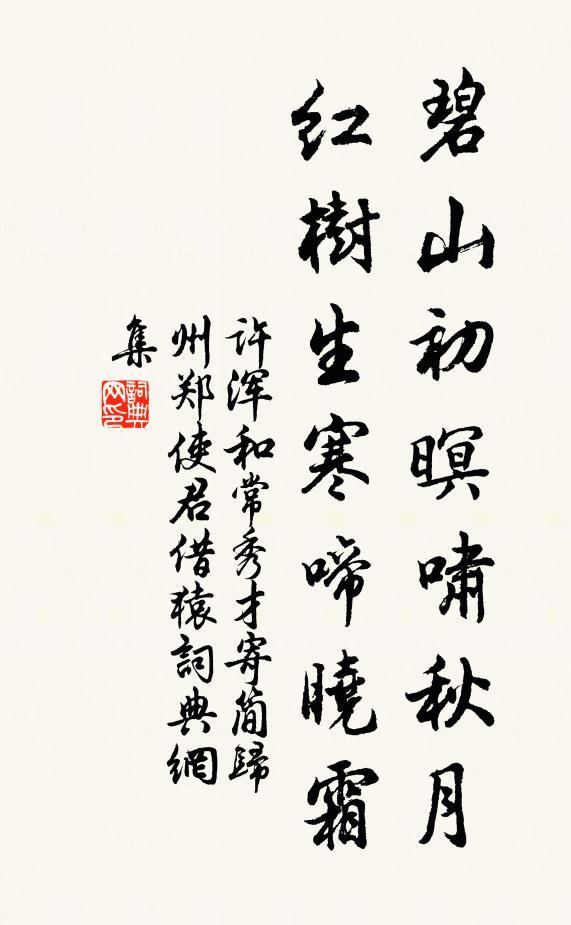 碧山初暝嘯秋月
紅樹生寒啼曉霜
許浑和常秀才寄简歸
州郑使君借猿詞典網
集
詞典
网印